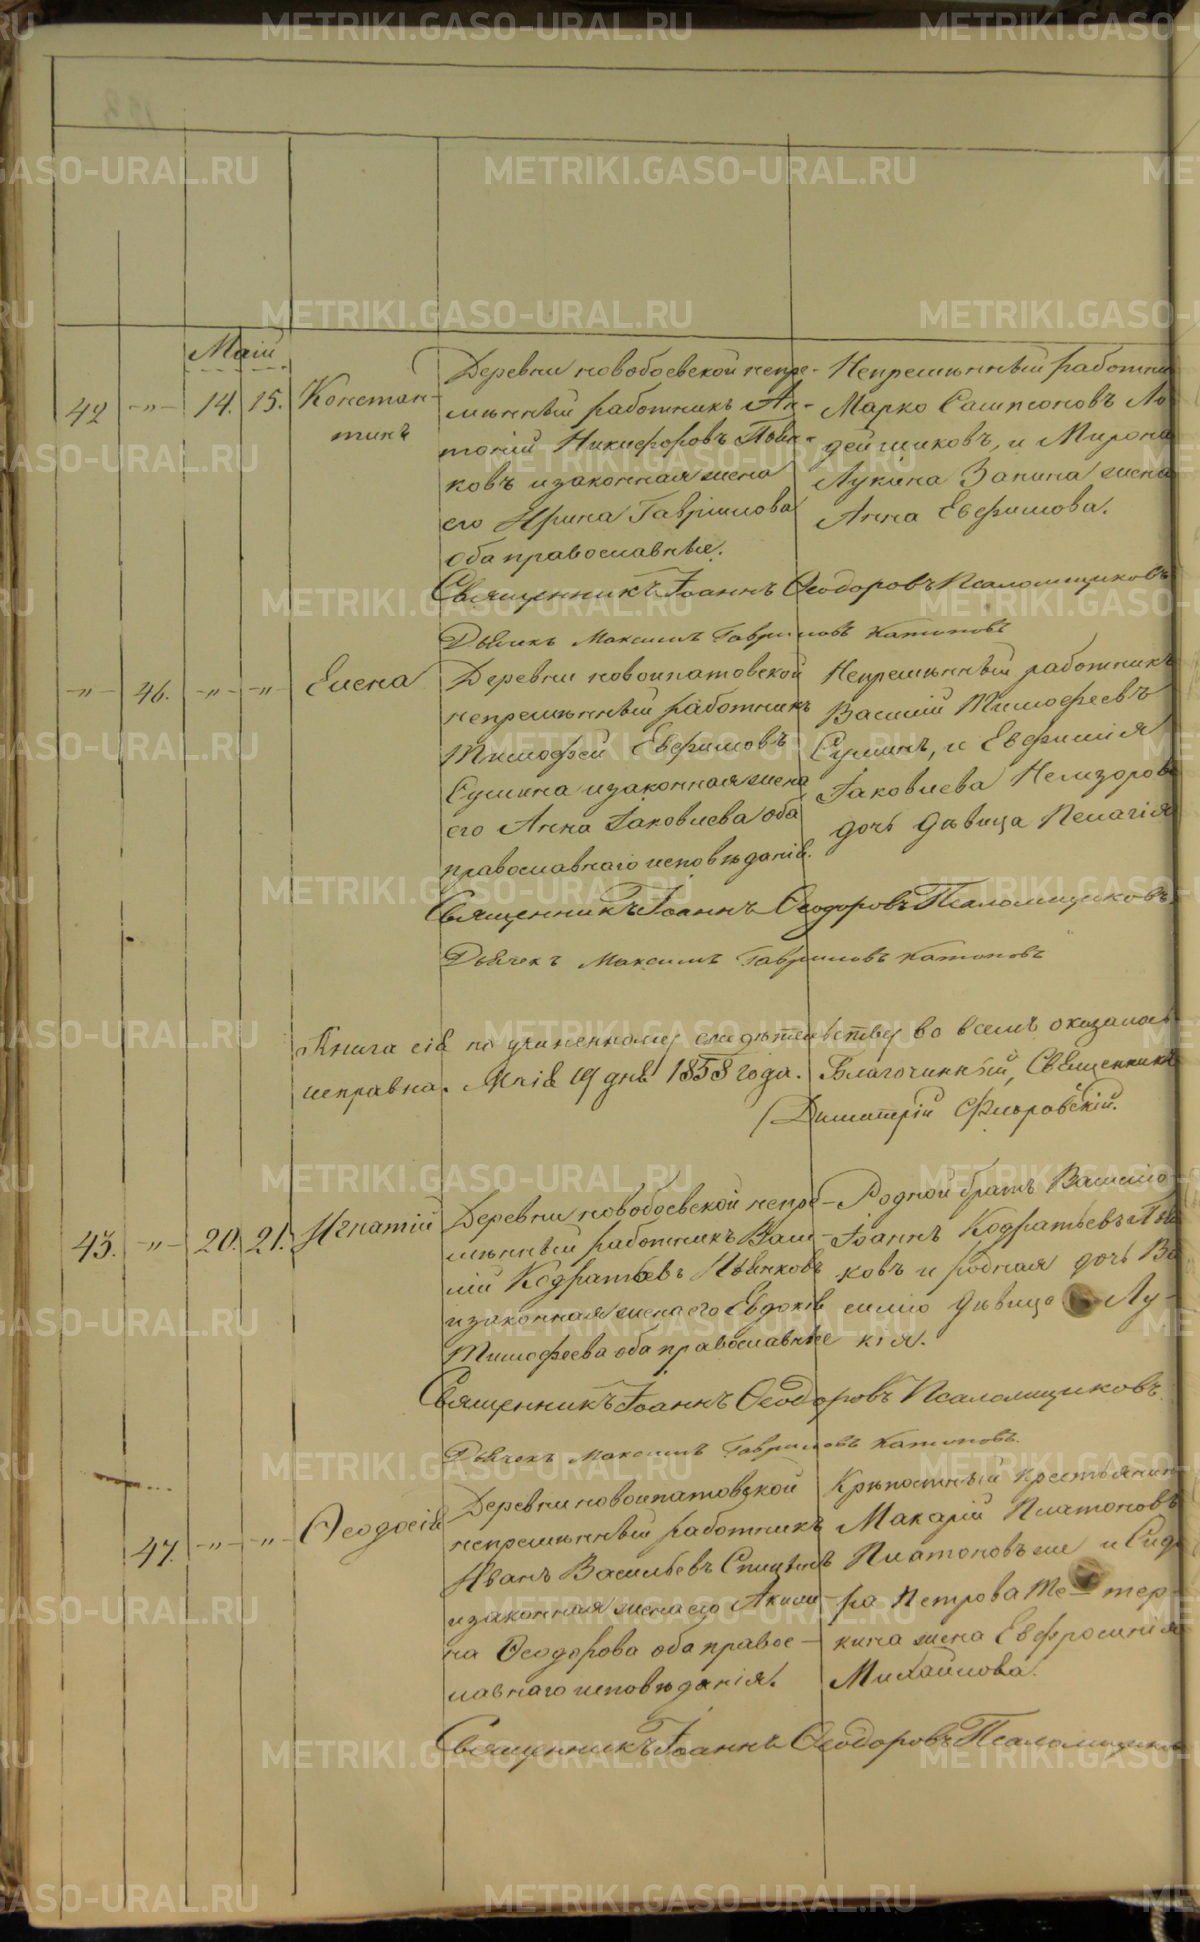 Маій
42 -"- 14. 15. Констан-
тинъ
Деревни новобоевской непре-
мѣнный работникъ Ан-
тоній Никифоровъ
ковъ и законная жена
его Ирина Гавріилова
оба православные.
Непремѣнный работни
Марко Сампсоновъ Ло
дейщиковъ, и Мирона
Лукина Запина жена
Анна Евфимова.
Священникъ Іоаннъ Ѳеодоровъ Псаломщиковъ
Дьячекъ Максимъ Гавриловъ
-"- 46. -"- -"- Елена
Деревни новоипатовской
непремѣнный работникъ
Тимофей Евфимовъ
Сумина и законная жена
его Анна Іаковлева оба
православнаго исповѣданія.
Непремѣнный работникъ
Василій Тимофеевъ
Суминъ, и Евфимія
Іаковлева
дочь дѣвица Пелагія
Священникъ Іоаннъ Ѳеодоровъ Псаломщиковъ
Дьячекъ Максимъ Гавриловъ
Книга сія по учиненному свидѣтельству во всемъ оказалась
исправна. Маія 19 дня 1858 года. Благочинный, Священникъ
Димитрій Флоровскій.
43. -"- 20. 21. Игнатій
Деревни новобоевской непре-
мѣнный работникъ Васи-
лій Кодратьевъ Пьянковъ
и законная жена его Евдокія
Тимофеева оба православные
Родной братъ Василію
Іоаннъ Кодратьевъ Пьян
ковъ и родная дочь Ва
силію дѣвица Лу-
кія.
Священникъ Іоаннъ Ѳеодоровъ Псаломщиковъ.
Дьячекъ Максимъ Гавриловъ
47. -"- -"- Ѳеодосія
Деревни новоипатовской
непремѣнный работникъ
Иванъ Васильевъ Спицынъ
и законная жена его Акили-
на Ѳеодорова оба право-
славнаго исповѣданія.
Крѣпостный крестьянин
Макарій Платоновъ
Платоновъ же и Сидо
ра Петрова Те-тер-
кина жена Евфросинія
Михайлова.
Священникъ Іоаннъ Ѳеодоровъ Псаломщиков